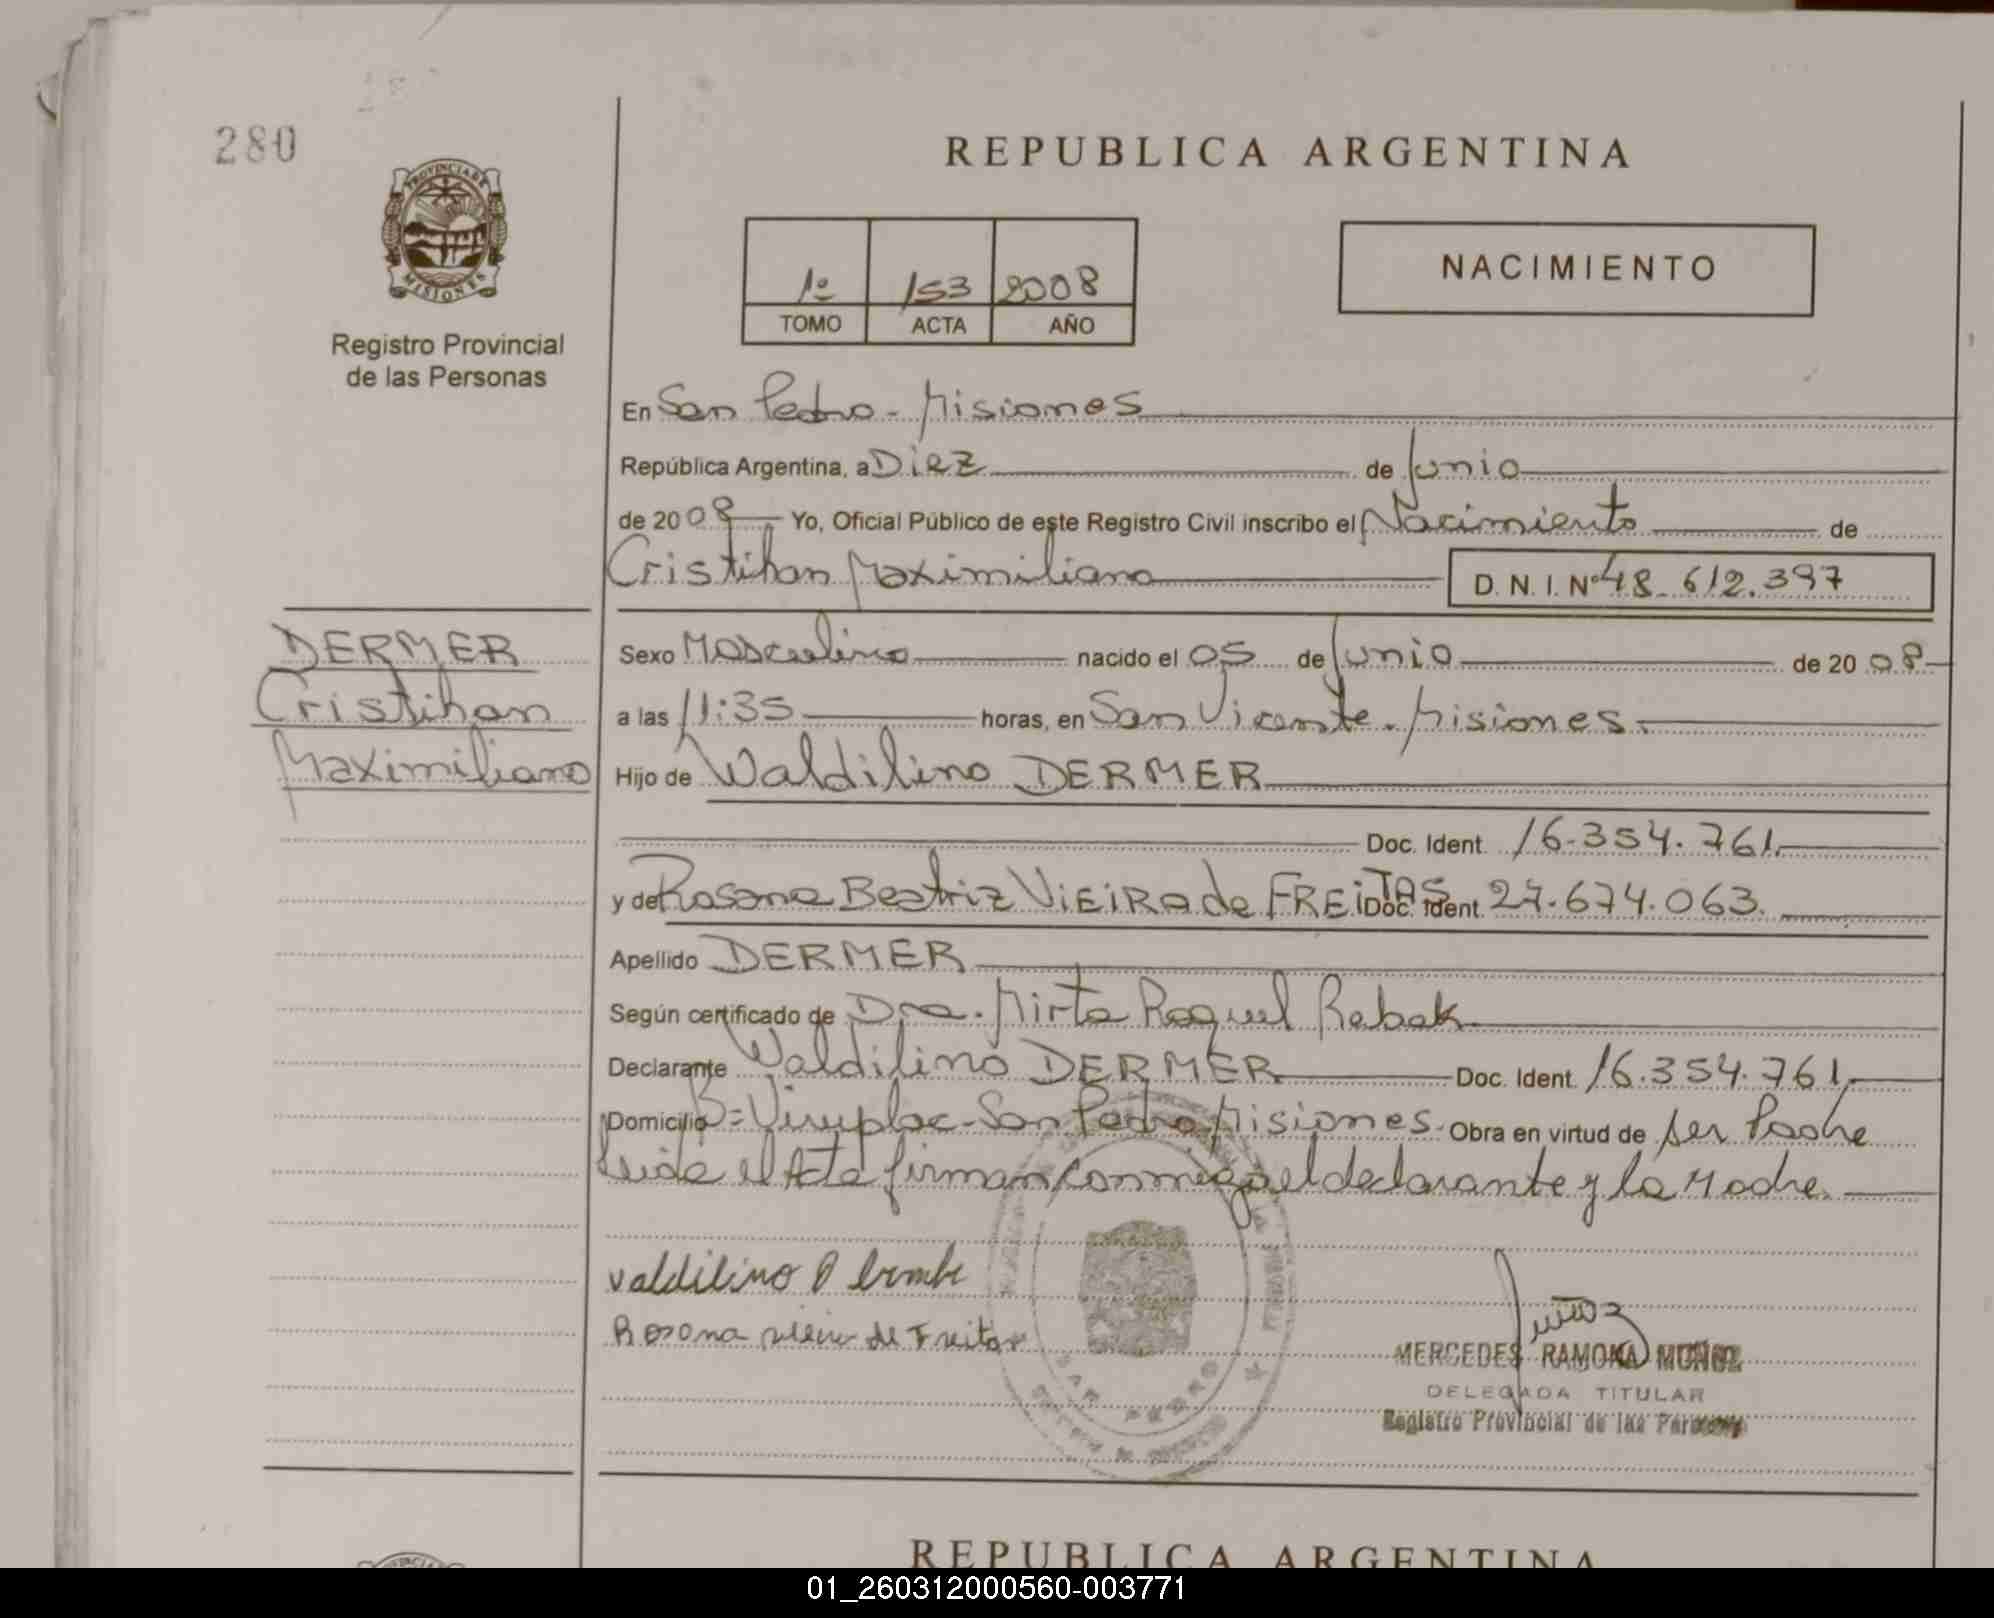 280
REPUBLICA ARGENTINA
PROVINCIA DE
MISIONES
Registro Provincial
de las Personas
1º 153 2008
TOMO ACTA AÑO
NACIMIENTO
En San Pedro - Misiones
República Argentina, a Diez de Junio
de 2008 Yo, Oficial Público de este Registro Civil inscribo el Nacimiento de
Cristihan Maximiliano D. N. I. Nº 48.612.397
DERMER
Cristihan
Maximiliano
Sexo Masculino nacido el 05 de Junio de 2008
a las 11:35 horas, en San Vicente - Misiones.
Hijo de Waldilino DERMER
Doc. Ident. 16.354.761.
y de Rosana Beatriz VIEIRA de FREiTAS Doc. Ident. 27.674.063.
Apellido DERMER
Según certificado de Dra. Mirta Raquel Rebak
Declarante Waldilino DERMER Doc. Ident. 16.354.761.
Domicilio B= Viviplac - San Pedro, Misiones. Obra en virtud de ser Padre
Leida el Acta firman conmigo el declarante y la Madre.
valdilino
Rosona de Freitas
SAN PEDRO
Muñoz
MERCEDES RAMONA MUÑOZ
DELEGADA TITULAR
Registro Provincial de las Personas
REPUBLICA ARGENTINA
01_260312000560-003771